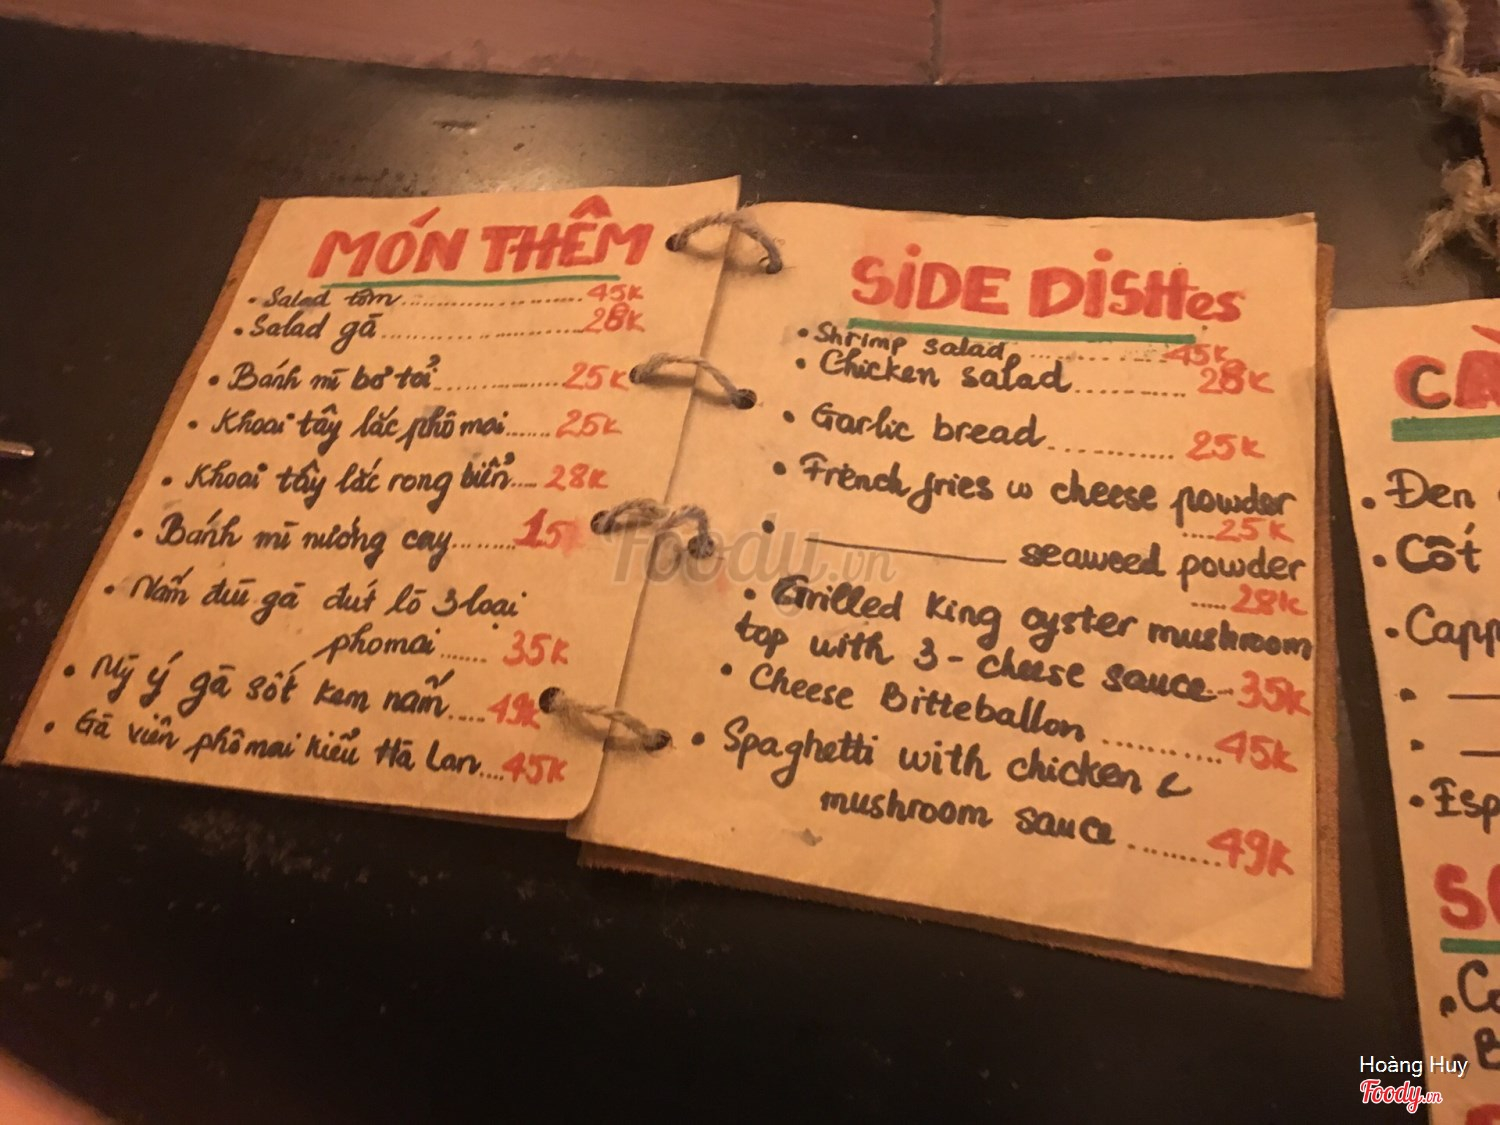 MÓN THÊM
• Salad tôm ........ 45K
• Salad gà ........ 28K
• Bánh mì bơ tỏi ........ 25K
• Khoai tây lắc phô mai ....... 25K
• Khoai tây lắc rong biển .... 28K
• Bánh mì nướng cay ......... 15
• Nấm đùi gà đút lò 3 loại
phomai ...... 35K
• Mỳ ý gà sốt kem nấm .... 49K
• Gà viên phô mai kiểu Hà Lan .... 45K
SiDE DiSHes
• Shrimp salad ........ 45K
• Chicken salad .......... 28K
• Garlic bread .......... 25K
• French fries w cheese powder
.... 25K
• ———— seaweed powder
..... 28K
• Grilled King oyster mushroom
top with 3 - cheese sauce ... 35K
• Cheese Bitteballon ......... 45K
• Spaghetti with chicken &
mushroom sauce ......... 49K
CÀ
• Đen
• Cốt
• Capp
• —
• —
• Esp
Foody.vn
Hoàng Huy
Foody.vn